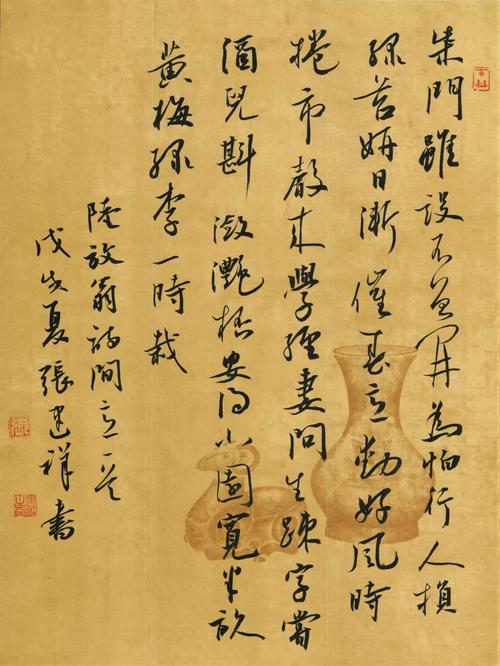 柴門雖設不曾開為怕行人損
綠苔妍日漸催春意動好風時
捲市聲來學經妻問生疎字嘗
酒兒斟瀲灩杯安得小園寬半畝
黃梅綠李一時栽
陸放翁詩閒意一首
戊戌夏張建祥書